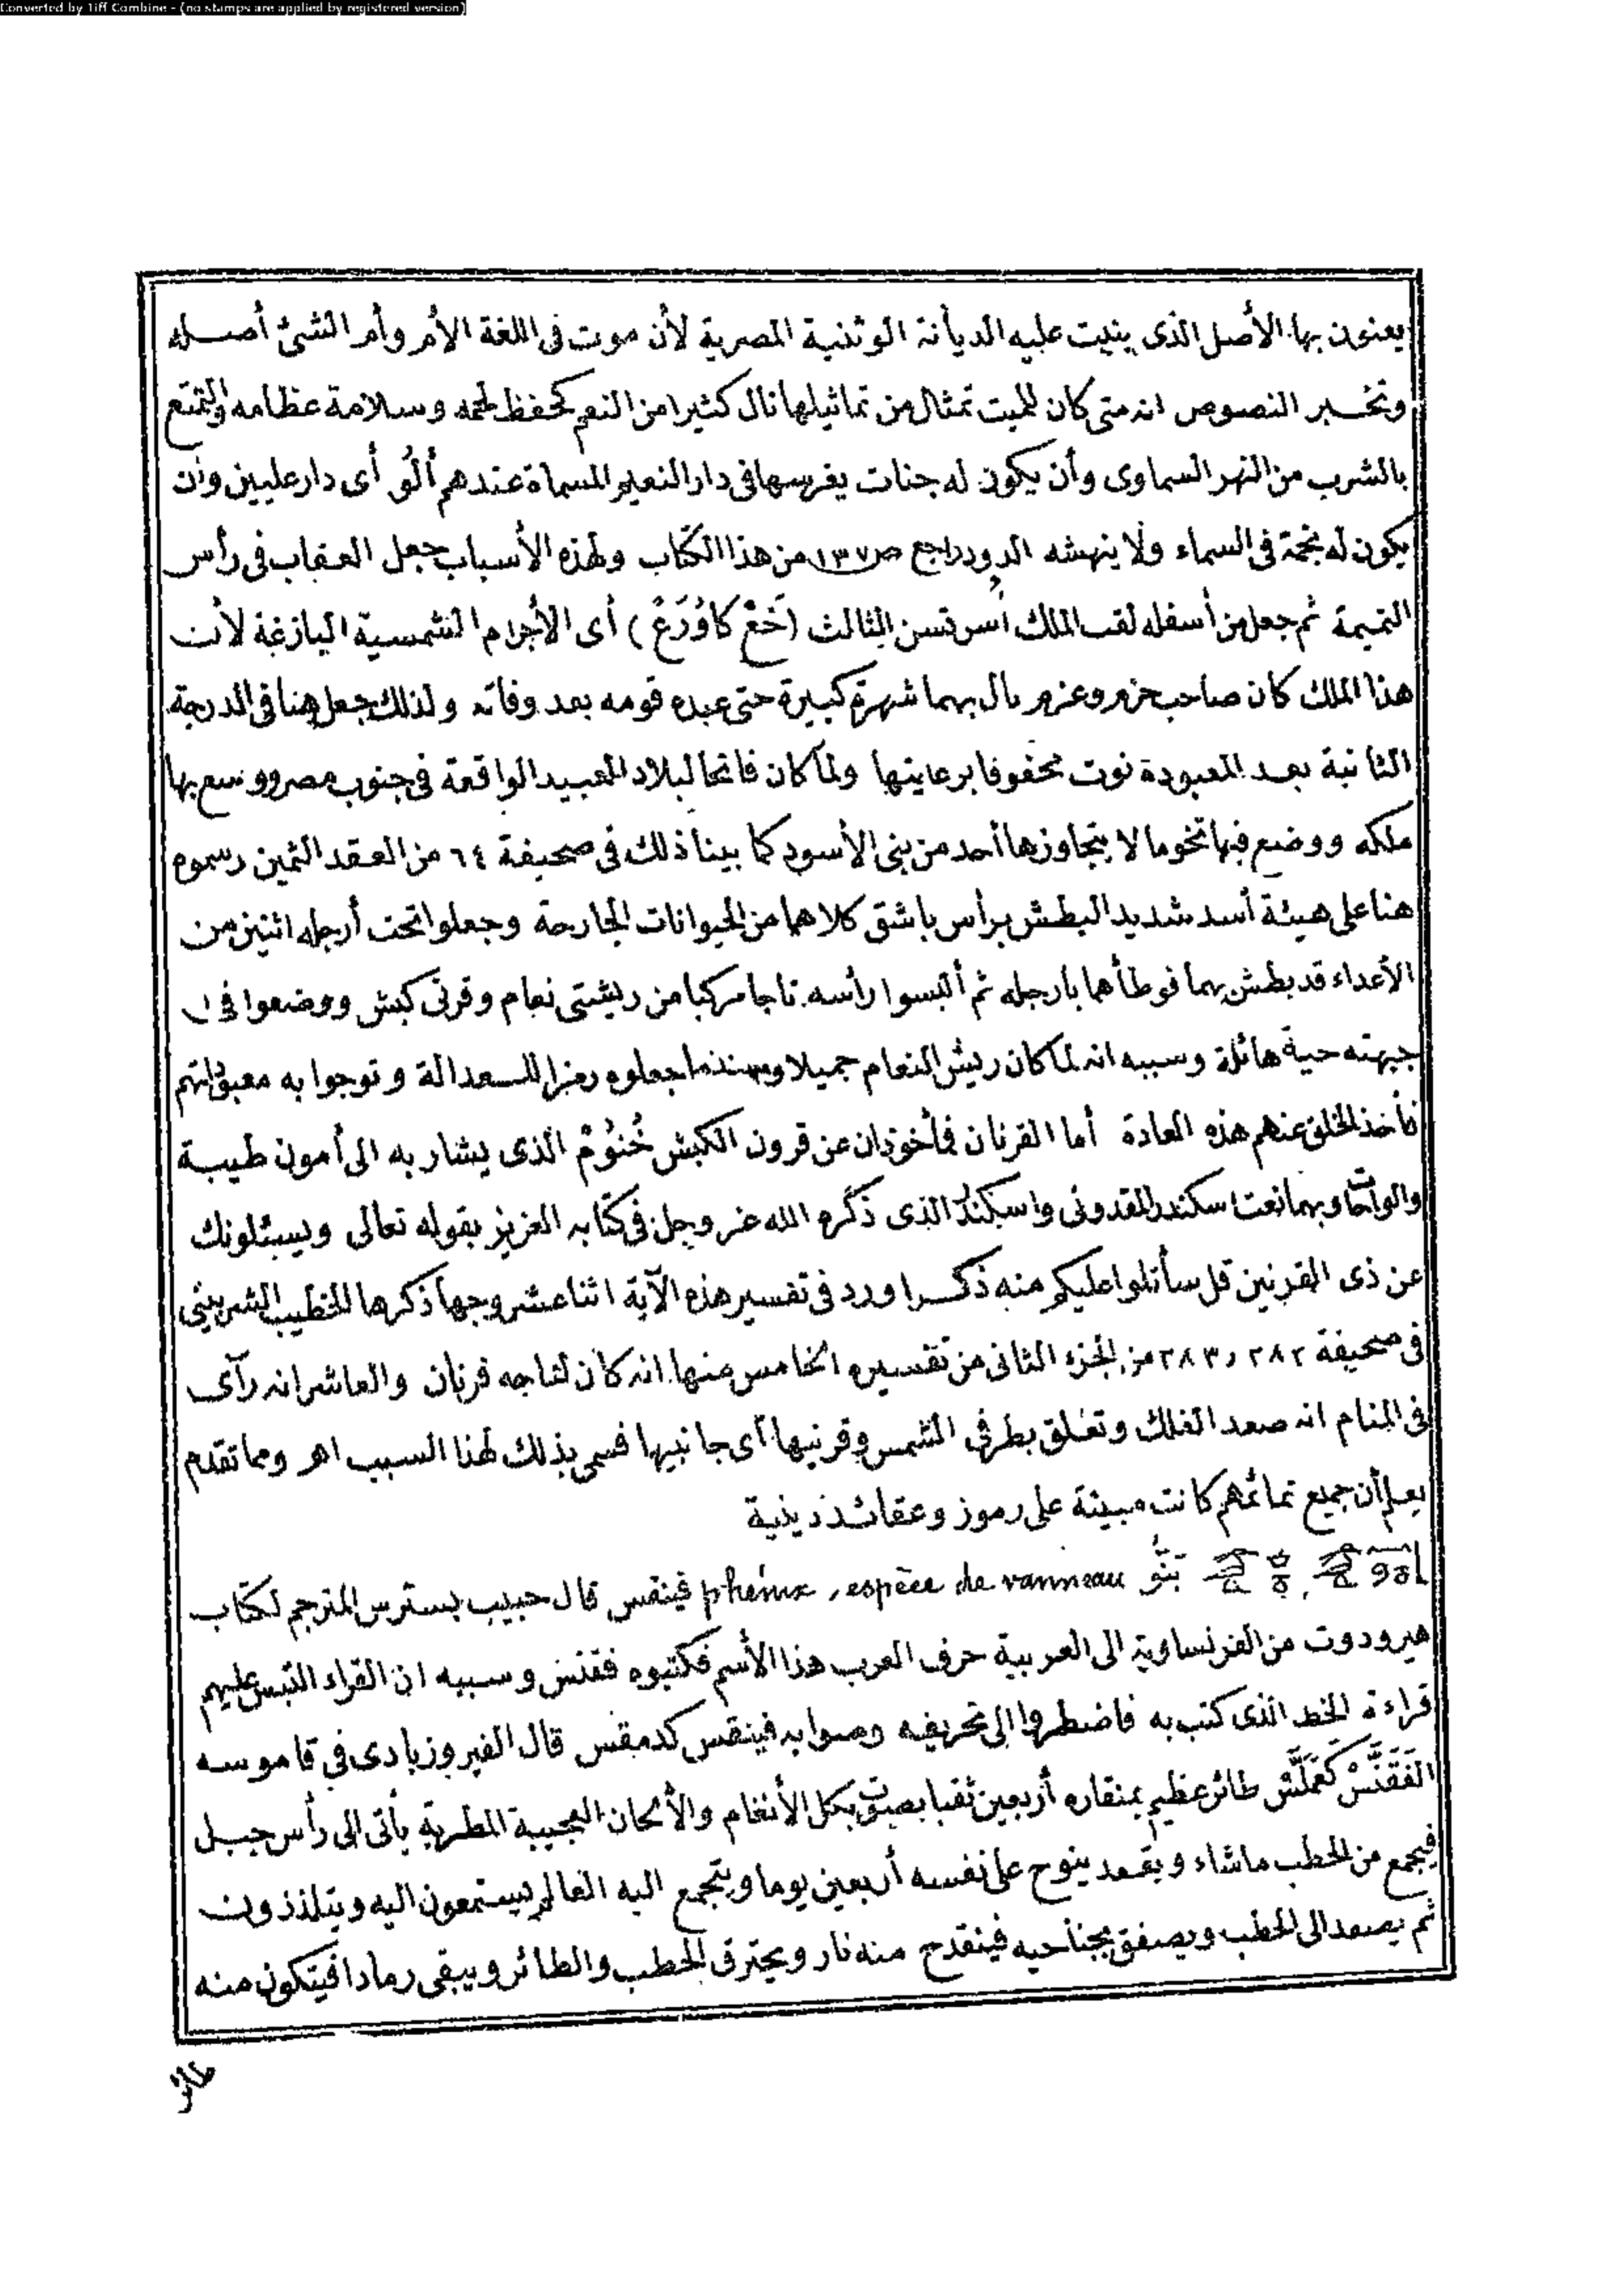 Converted by Tiff Combine - (no stamps are applied by registered version)
يعنون بها الأصل الذى بنيت عليه الديانة الوثنية المصرية لأن موت فى اللغة الأم وأم الشئ أصله
وتخبر النصوص انه متى كان للميت تمثال من تماثيلها نال كثيرا من النعم كحفظ لحمه وسلامة عظامه والتمتع
بالشرب من النهر السماوى وأن يكون له جنات يغرسها فى دار النعيم المسماة عندهم ألُو أى دار عليين وان
يكون له نجمة فى السماء ولا ينهشه الدود راجع ص ١٣٧ من هذا الكتاب ولهذه الأسباب جعل العقاب فى رأس
التميمة ثم جعل من أسفله لقب الملك أُسرتسن الثالث (خَعْ كاوُرَعْ) أى الأجرام الشمسية البازغة لأن
هذا الملك كان صاحب حزم وعزم نال بهما شهرة كبيرة حتى عبده قومه بعد وفاته ولذلك جعل هنا فى الدرجة
الثانية بعد المعبودة نوت محفوفا برعايتها ولما كان فاتحا لبلاد العبيد الواقعة فى جنوب مصر ووسع بها
ملكه ووضع فيها تخوما لا يتجاوزها أحد من بنى الأسود كما بينا ذلك فى صحيفة ٦٤ من العقد الثمين رسموه
هنا على هيئة أسد شديد البطش برأس باشق كلاهما من الحيوانات الجارحة وجعلوا تحت أرجله اثنين من
الأعداء قد بطش بهما فوطأهما بأرجله ثم ألبسوا رأسه تاجا مركبا من ريشتى نعام وقرنى كبش ووضعوا فى
جبهته حية هائلة وسببه انه لما كان ريش النعام جميلا جعلوه رمزا للعدالة وتوجوا به معبوداتهم
فأخذ الخلق عنهم هذه العادة أما القرنان فمأخوذان عن قرون الكبش خُنوُمْ الذى يشار به الى أمون طيبة
والواحات وبهما نعت اسكندر المقدونى واسكندر الذى ذكره الله عز وجل فى كتابه العزيز بقوله تعالى ويسئلونك
عن ذى القرنين قل سأتلوا عليكم منه ذكرا ورد فى تفسير هذه الآية اثنا عشر وجها ذكرها الخطيب الشربينى
فى صحيفة ٢٨٢ و ٢٨٣ من الجزء الثانى من تفسيره الخامس منها انه كان لتاجه قرنان والعاشر انه رآى
فى المنام انه صعد الفلك وتعلق بطرفى الشمس وقرنيها أى جانبيها فسمى بذلك لهذا السبب اهـ ومما تقدم
يعلم أن جميع تمائمهم كانت مبينة على رموز وعقائد دينية
بَنُّو phénix , espèce de vanneau فينقس قال حبيب بسترس المترجم لكتاب
هيرودوت من الفرنساوية الى العربية حرف العرب هذا الأسم فكتبوه ققنس وسببه ان القراء التبس عليهم
قراءة الخط الذى كتب به فاضطروا الى تحريفه وصوابه فينقس كدمقس قال الفيروزبادى فى قاموسه
الفَقَنَّسْ كَعَمَلَّسْ طائر عظيم بمنقاره أربعين ثقبا يصوت بكل الأنغام والألحان العجيبة المطربة يأتى الى رأس جبل
فيجمع من الحطب ماشاء ويقعد ينوح على نفسه أربعين يوما ويتجمع اليه العالم يستمعون اليه ويتلذذون
ثم يصعد الى الحطب ويصفق بجناحيه فينقدح منه نار ويحترق الحطب والطائر ويبقى رمادا فيتكون منه
طائر